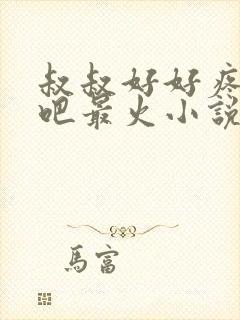 叔叔好好疼
吧最火小說
馬富